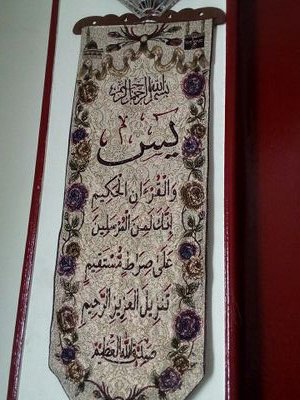 بسم الله الرحمن الرحيم
يس
والقرآن الحكيم
إنك لمن المرسلين
على صراط مستقيم
تنزيل العزيز الرحيم
صدق الله العظيم